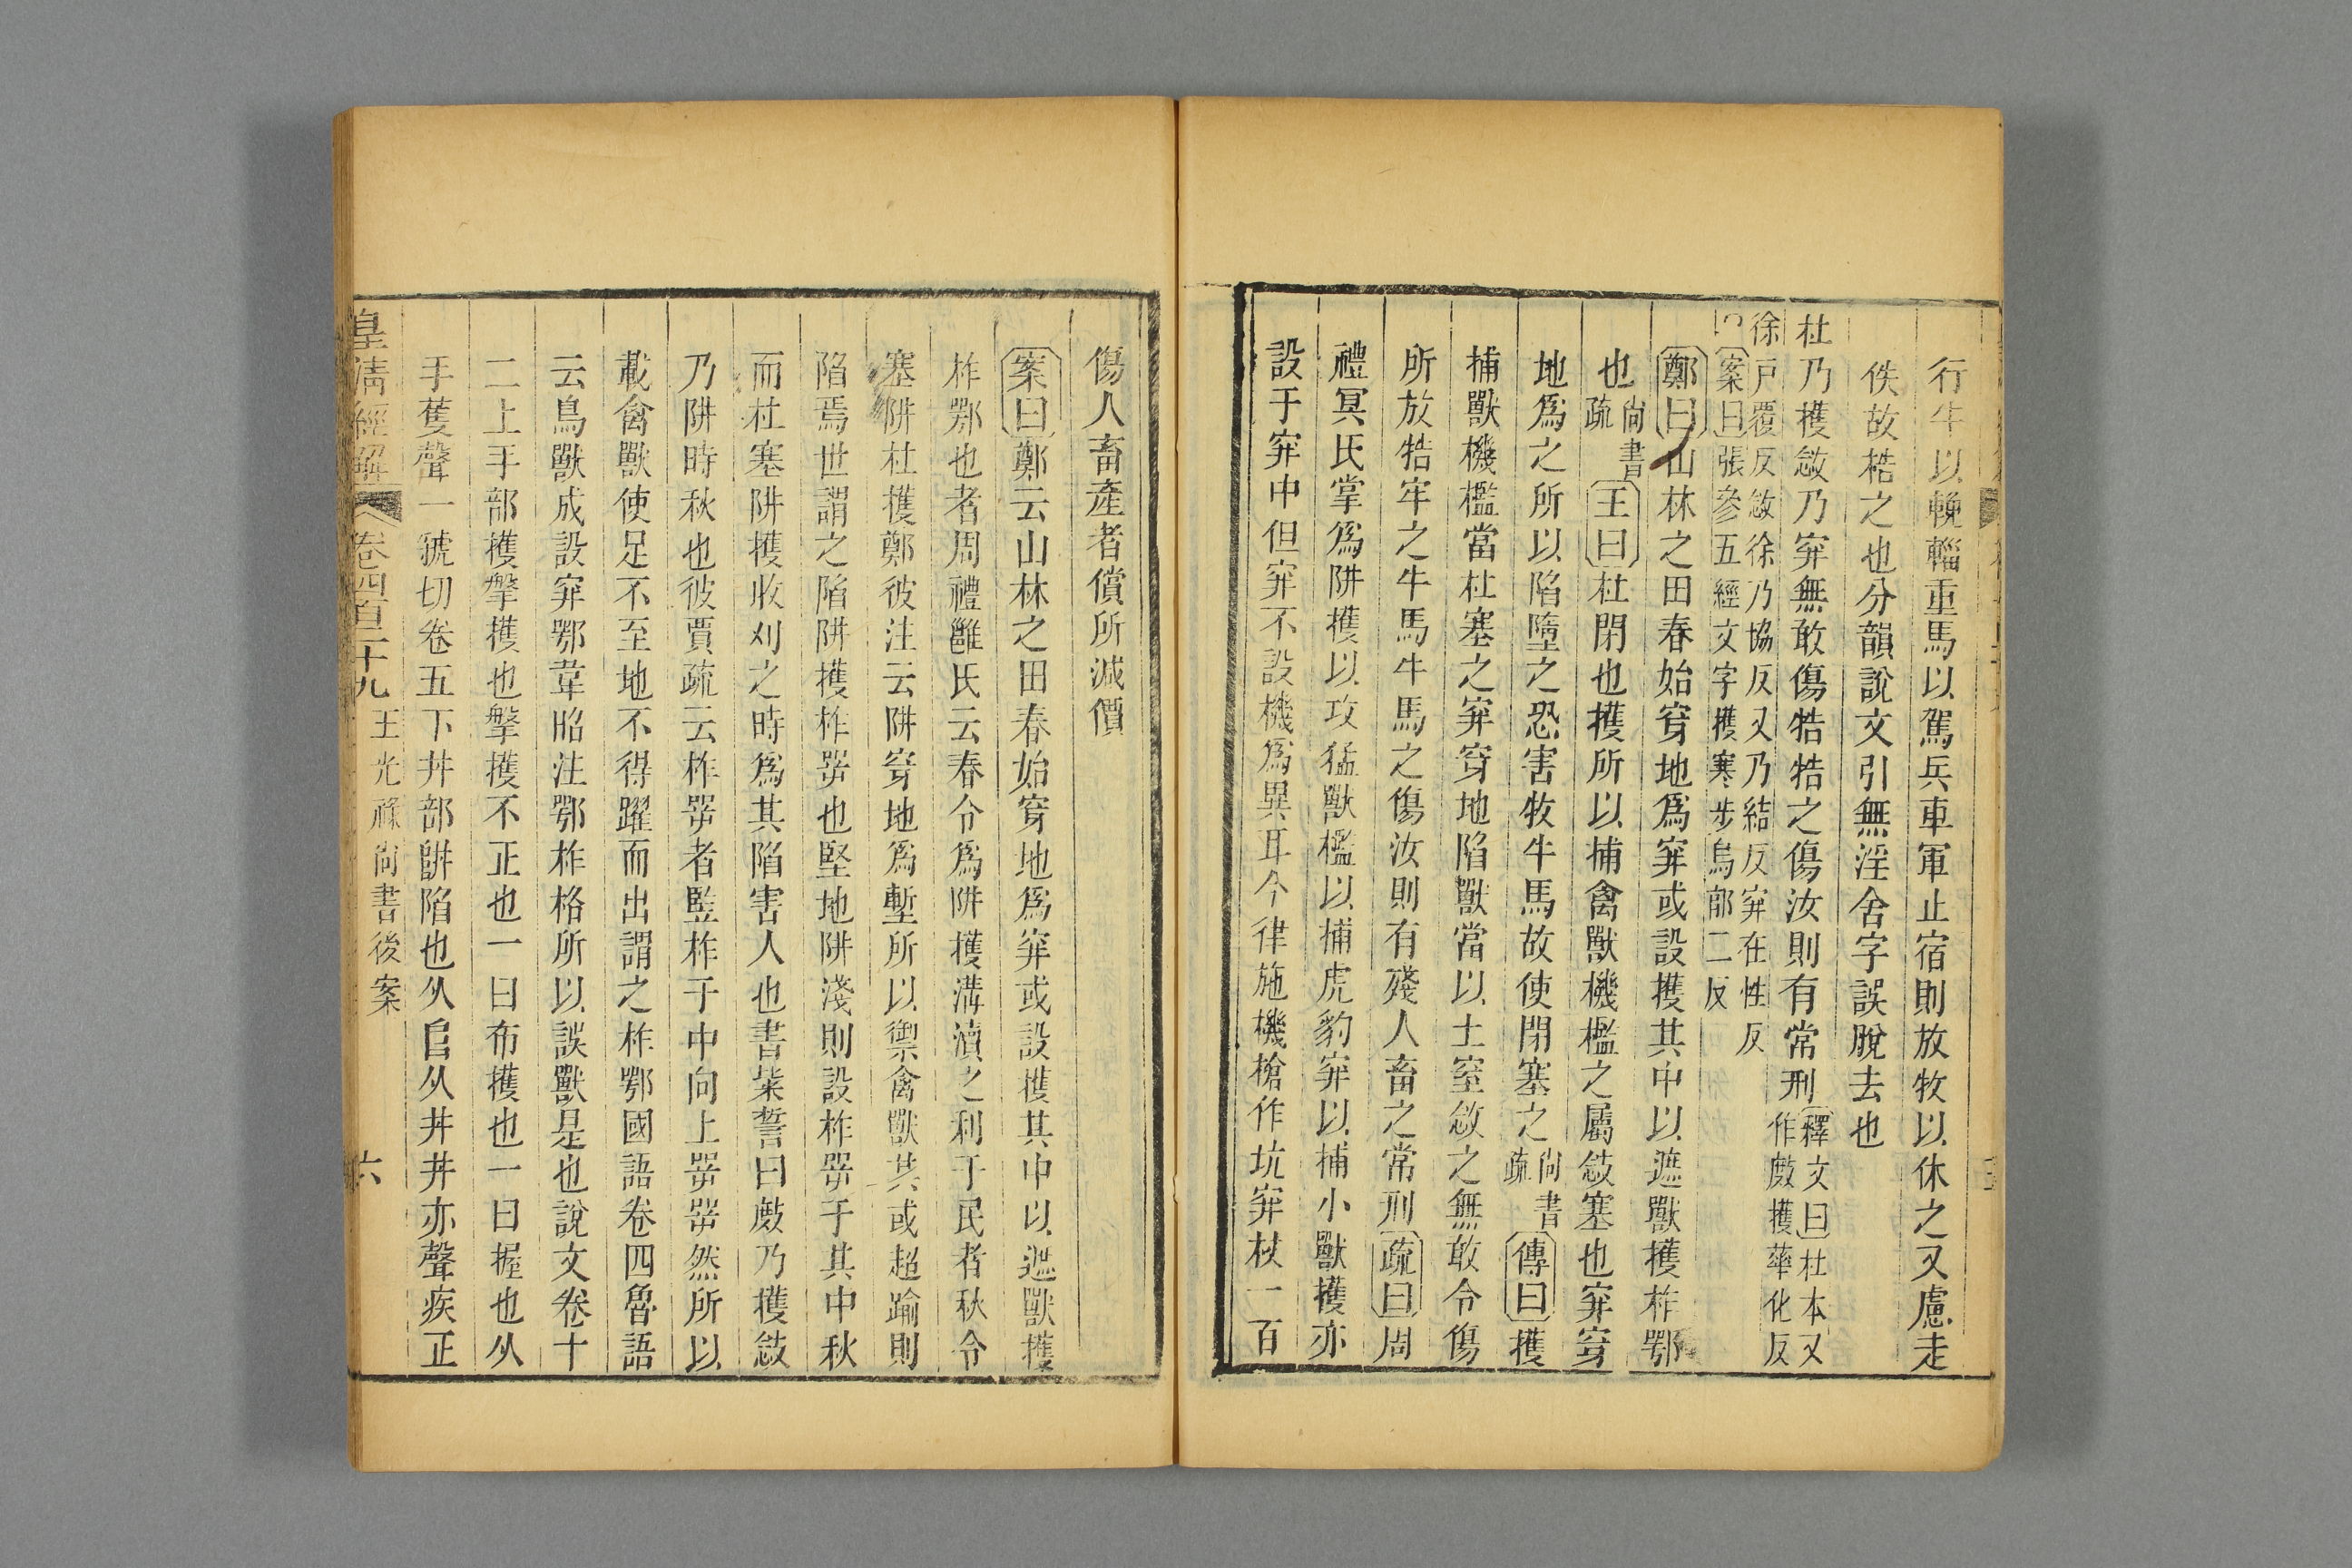 行牛以輓輜重馬以駕兵車軍止宿則放牧以休之又慮走
佚故梏之也分韻說文引無淫舍字誤脫去也
杜乃擭敜乃穽無敢傷牿牿之傷汝則有常刑
釋文曰杜本又
作㪇擭華化反
徐戶覆反敜徐乃協反又乃結反穽在性反
案曰張參五經文字擭寒步烏郭二反
鄭曰山林之田春始穿地爲穽或設擭其中以遮獸擭柞鄂
也
尙書
疏
王曰杜閉也擭所以捕禽獸機檻之屬敜塞也穽穿
地爲之所以陷墮之恐害牧牛馬故使閉塞之
尙書
疏
傳曰擭
捕獸機檻當杜塞之穽穿地陷獸當以土窒敜之無敢令傷
所放牿牢之牛馬牛馬之傷汝則有殘人畜之常刑疏曰周
禮冥氏掌爲阱擭以攻猛獸檻以捕虎豹穽以捕小獸擭亦
設于穽中但穽不設機爲異耳今律施機槍作坑穽杖一百
傷人畜產者償所減價
案曰鄭云山林之田春始穿地爲穽或設擭其中以遮獸擭
柞鄂也者周禮雝氏云春令爲阱擭溝瀆之利于民者秋令
塞阱杜擭鄭彼注云阱穿地爲塹所以禦禽獸其或超踰則
陷焉世謂之陷阱擭柞㗁也堅地阱淺則設柞㗁于其中秋
而杜塞阱擭收刈之時爲其陷害人也書粊誓曰㪇乃擭敜
乃阱時秋也彼賈疏云柞㗁者豎柞于中向上㗁㗁然所以
載禽獸使足不至地不得躍而出謂之柞鄂國語卷四魯語
云鳥獸成設穽鄂韋昭注鄂柞格所以誤獸是也說文卷十
二上手部擭擥擭也擥擭不正也一曰布擭也一曰握也从
手蒦聲一虢切卷五下井部阱陷也从𨸏从井井亦聲疾正
皇淸經解
卷四百二十九
王光祿尙書後案
六